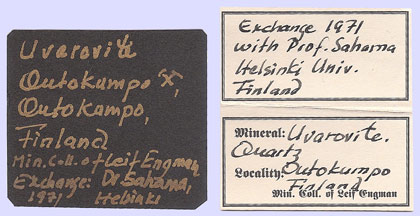 Uvarovite
Outokumpo ⚒,
Outokumpo,
Finland
Min. Coll. of Leif Engman
Exchange: Dr Sahama,
1971 Helsinki
Exchange 1971
with Prof. Sahama
Helsinki Univ.
Finland
Mineral: Uvarovite.
Quartz
Locality: Outokumpo
Finland
Min. Coll. of Leif Engman